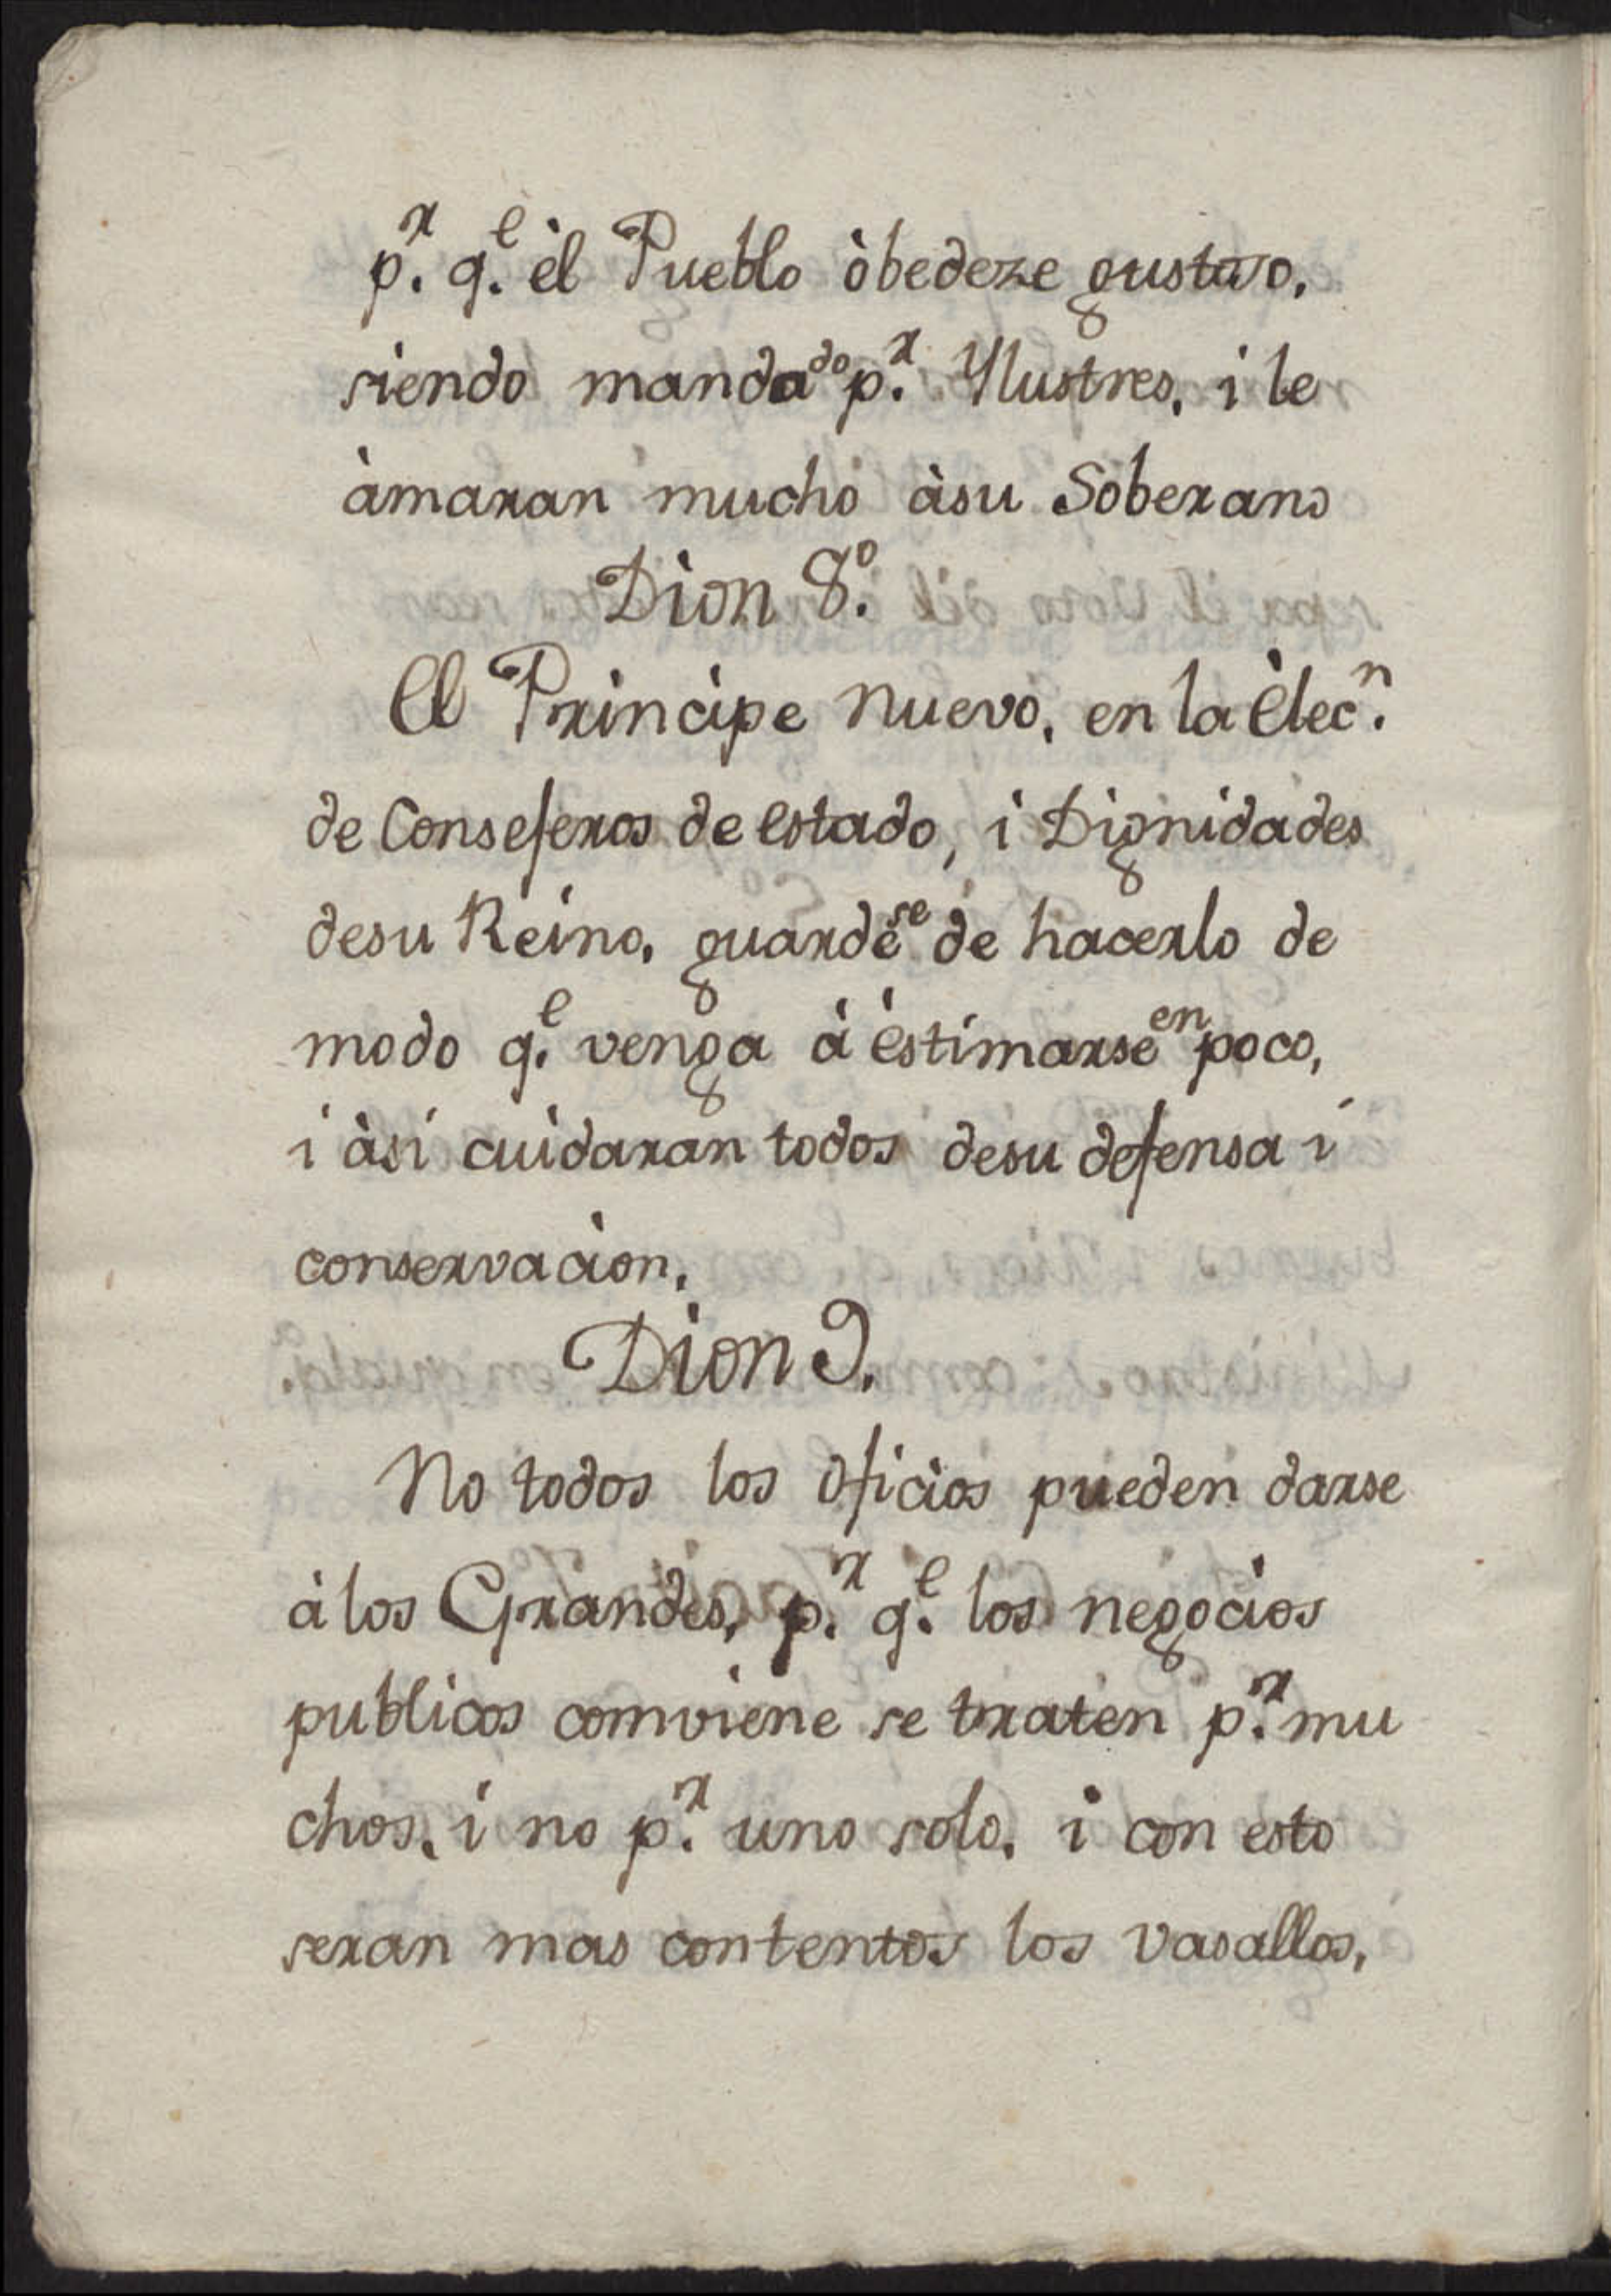 p.r q.e èl Pueblo òbedeze gustoso,
siendo mandado p.r Ylustres, i le
àmaran mucho àsu Soberano
Dion 8.o
El Principe nuevo, en la Èlec.n
de Consejeros de estado, i Dignidades
desu Reino, guardese de hacerlo de
modo q.e venga à èstimarse en poco,
i àsi cuidaran todos desu defensa i
conservacion,
Dion 9.
No todos los oficios pueden darse
à los Grandes, p.r q.e los negocios
publicos comviene se traten p.r mu
chos, i no p.r uno solo, i con esto
seran mas contentos los vasallos,